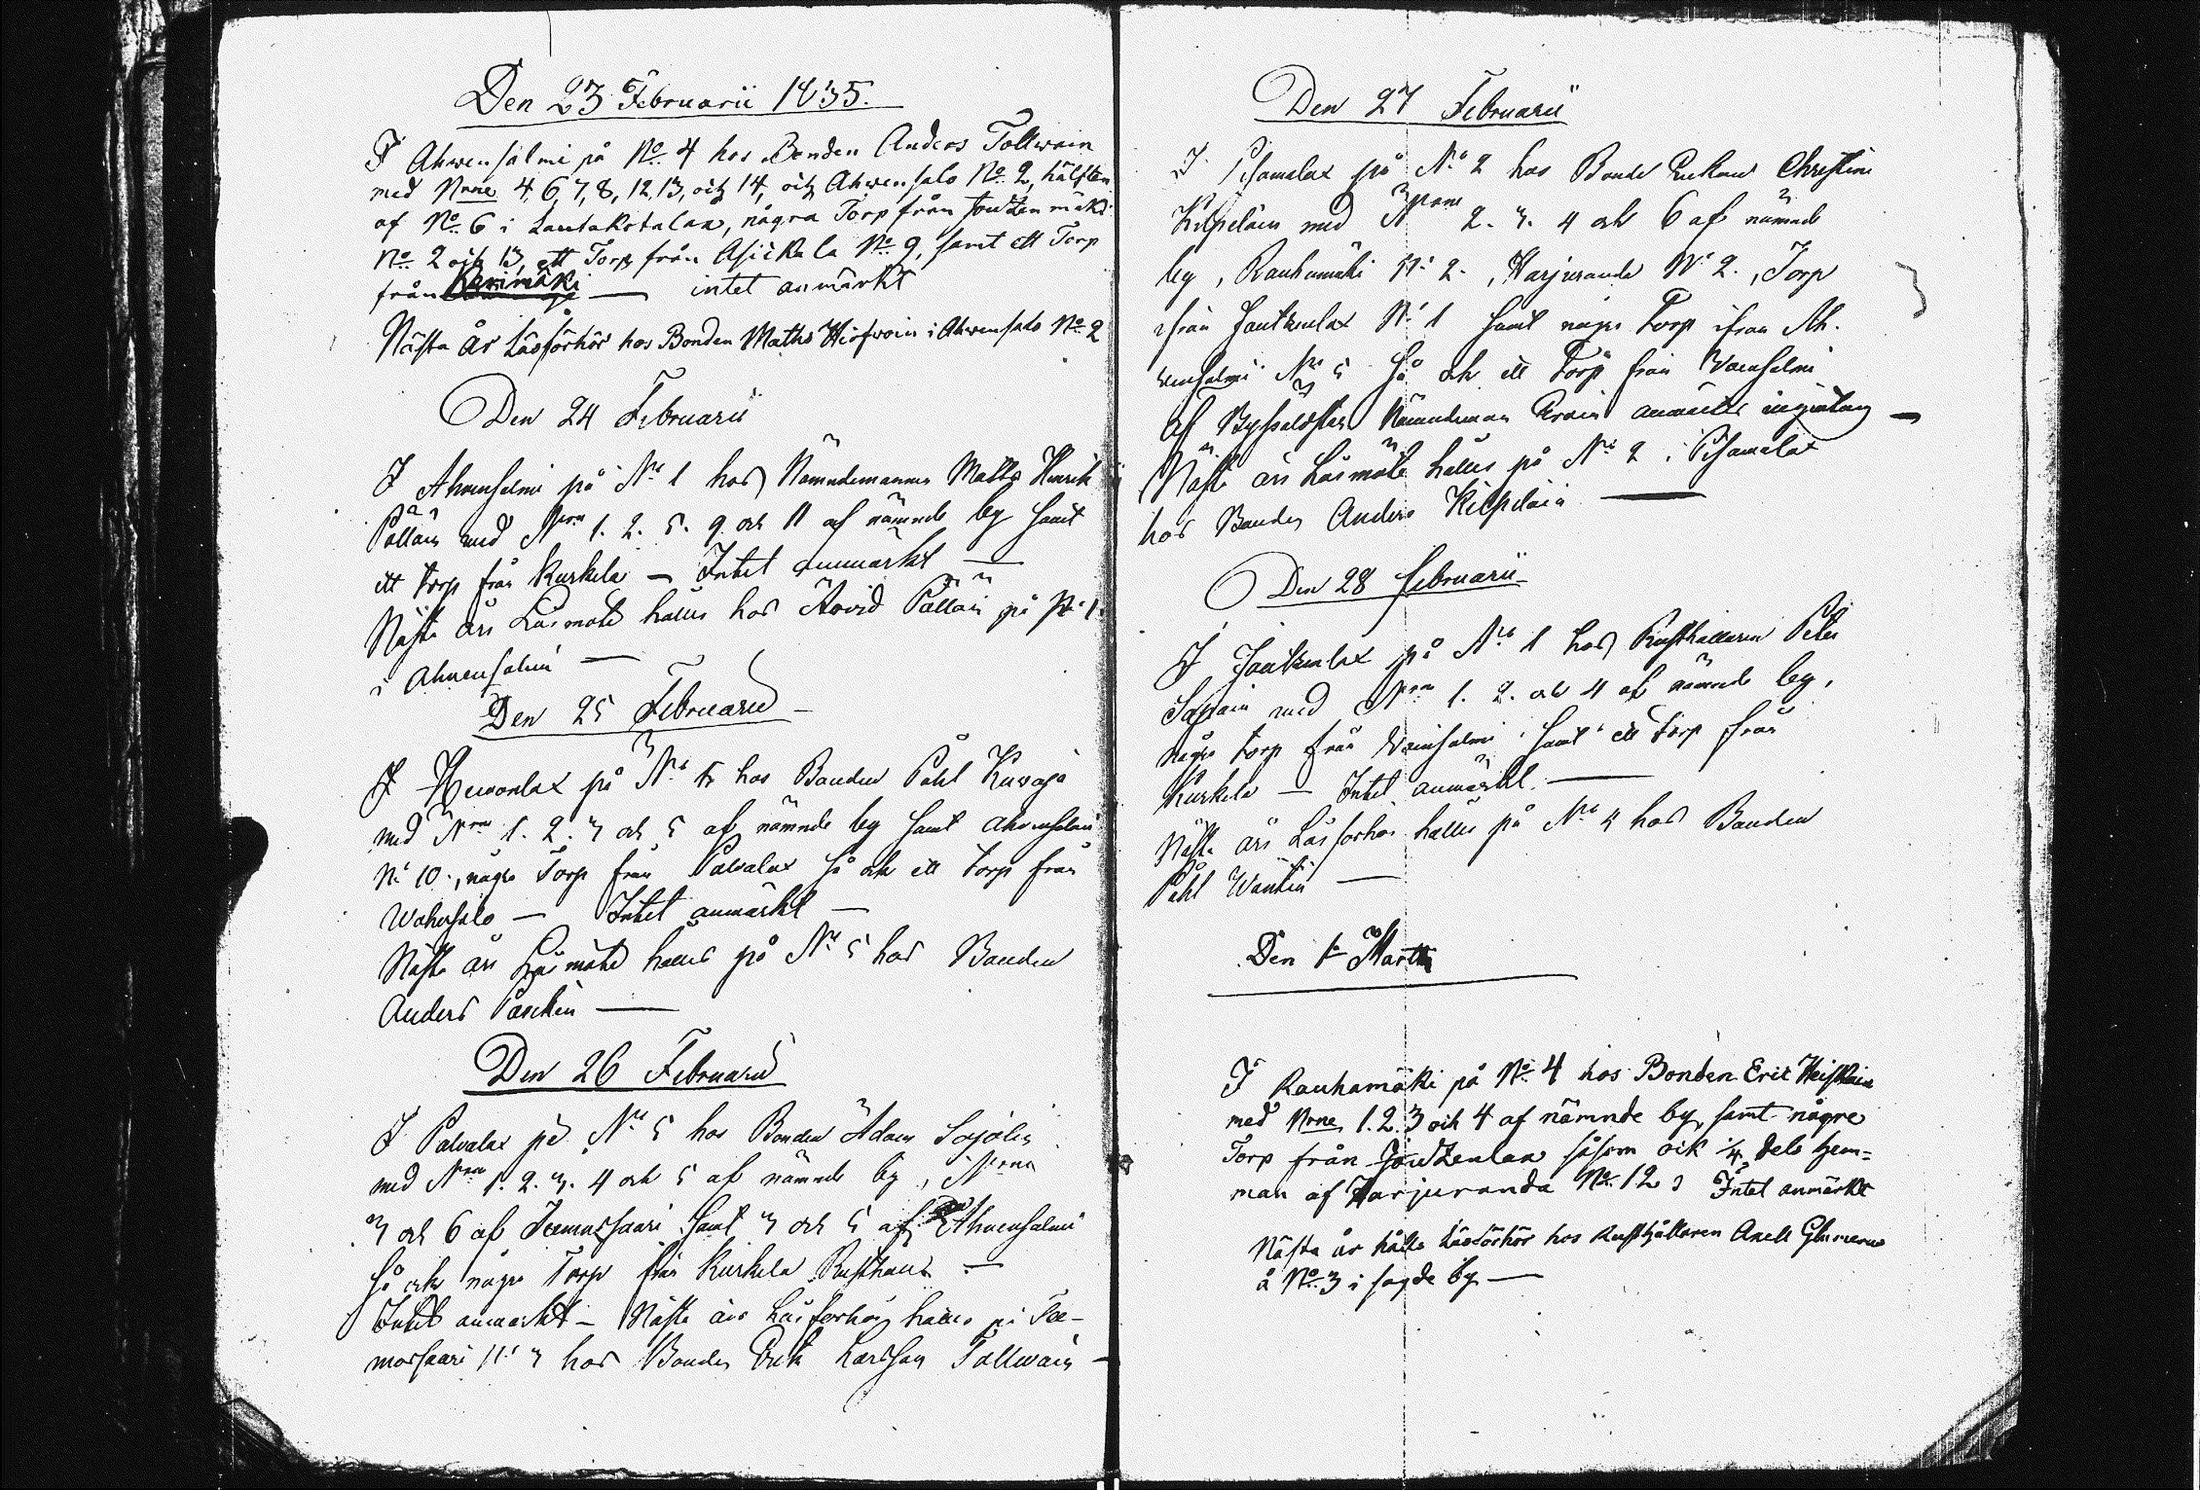 Den 23 Februarii 1835.
I Ahwensalmi på No 4 hos Bonden Anders Tollwain
med Nrne 4, 6, 7, 8, 12, 13, och 14, och Ahwensalo No 2, hälften
af No 6 i Lautakotalax, några Torp från
No 2 och 13, ett Torp från Asickala No 9, samt ett Torp
från Kerimäki — intet anmärkt
Nästa år Läsförhör hos Bonden Maths Hirfwoin i Ahwensalo No 2
Den 24 Februarii
I Ahvensalmi på No 1 hos Nämndemannen Matts Henrik
Pöllän med Nrne 1. 2. 5. 9 och 11 af nämnde by samt
ett torp från Kurkela — Intet anmärkt —
Nästa års Läsmöte hålles hos Arvid Pöllän på No 1.
i Ahvensalmi —
Den 25 Februarii —
I Heivonlax på No hos Bonden Påhl Kuvaja
med Nrne 1. 2. 3 och 5 af nämnde by samt Ahvensalmi
No 10., några Torp från Palvalax så ock ett torp från
Wohersalo — Intet anmärkt —
Nästa års Läsmöte hålles på No 5 hos Bonden
Anders Paschin —
Den 26 Februarii
I Palvalax på No 5 hos Bonden Adam
med Nrne 1. 2. 3. 4 och 5 af nämnde by, Nrne
3 och 6 af Teemassaari samt 3 och 5 af Ahvensalmi
så ock några Torp från Kurkela Rusthåll —
Intet anmärkt — Nästa års Läsförhör hålles på Tee-
massaari No 3 hos Bonden Erik Larsson Tollwain —
Den 27 Februarii
I Pihamalax på No 2 hos Bonde Enkan Christina
Kilpeläin med Nrone 2. 3. 4 och 6 af nämnde
by, Rauhamäki No 2., Harjuranda No 2., Torp
ifrån Joutzenlax No 1 samt några Torp ifrån Ah-
vensalmi No 5 så ock ett Torp från Wainsalmi
Af Byssåldsten Nämndeman anmältes ingenting —
Nästa års Läsmöte hålles på No 2 i Pihamalax
hos Bonden Anders Kilpeläin —
Den 28 Februarii
I Joutzenlax på No 1 hos Rusthållaren Peter
med Nrne 1. 2. och 4 af nämnde by,
några torp från Wainsalmi samt ett torp från
Kurkela — Intet anmärkt. —
Nästa års Läsförhör hålles på No 4 hos Bonden
Påhl Wäntin —
Den 1 Martii
I Rauhamäki på No 4 hos Bonden Eric Heiskain
med Nrne 1. 2. 3 och 4 af nämnde by, samt några
Torp från Joutzenlax såsom ock 1/4 dels hem=
man af Harjuranda No 12 Intet anmärkt
Nästa år hålls Läsförhör hos Rusthållaren Axell
å No 3 i sagde by —